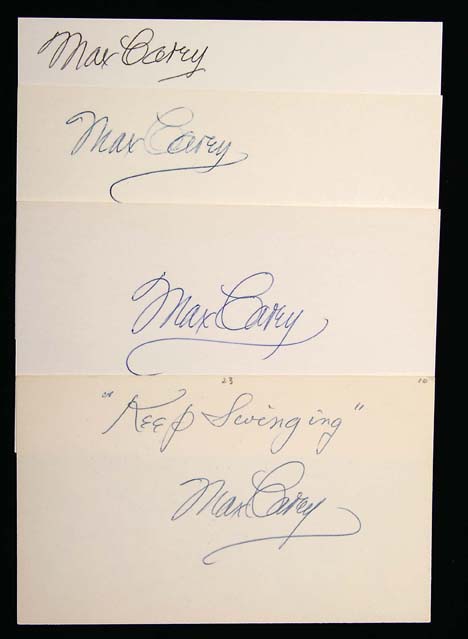 Max Carey
Max Carey
Max Carey
23 10
"Keep Swinging"
Max Carey